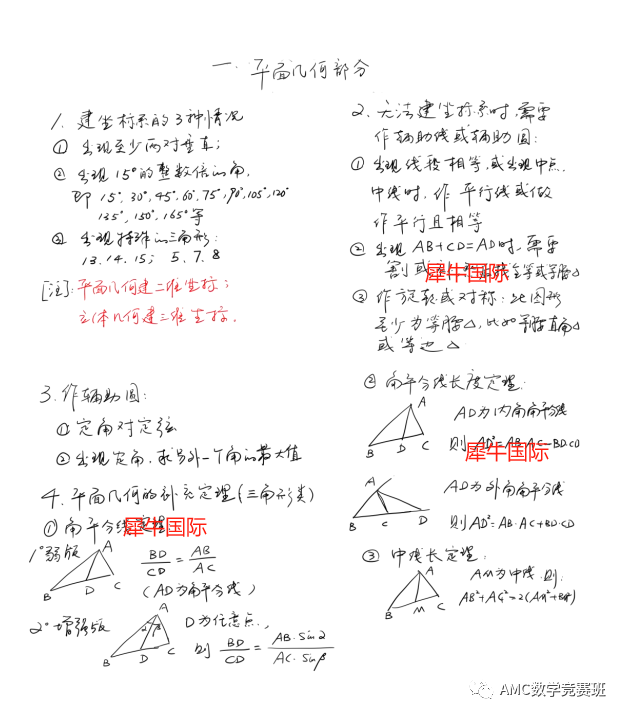 一. 平面几何部分
1. 建坐标系的3种情况
① 出现至少两对垂直;
② 出现15°的整数倍的角,
即 15°, 30°, 45°, 60°, 75°, 90°, 105°, 120°
135°, 150°, 165°等
③ 出现特殊的三角形:
13. 14. 15; 5. 7. 8
[注]: 平面几何建二维坐标;
立体几何建三维坐标.
2. 无法建坐标系时, 需要
作辅助线或辅助圆:
① 出现线段相等, 或出现中点.
中线时, 作平行线或做
作平行且相等
② 出现 AB+CD=AD时, 需要
割或 全等或等腰△
犀牛国际
③ 作旋转或对称: 此图形
至少为等腰△, 比如等腰直角△
或等边△
3. 作辅助圆:
① 定角对定弦
② 出现定角, 求另外一个角的最大值
4. 平面几何的补充定理(三角形类)
① 角平分线定理:
犀牛国际
1° 弱版 A B D C
BD/CD = AB/AC
(AD为角平分线)
2° 增强版 A α β B D C
D为任意点,
则 BD/CD = AB·Sinα/AC·Sinβ
② 角平分线长度定理:
A B D C
AD为内角角平分线
则 AD²=AB·AC-BD·CD
犀牛国际
A B C D
AD为外角角平分线
则AD²=AB·AC+BD·CD
③ 中线长定理:
A B M C
AM为中线, 则:
AB²+AC²=2(AM²+BM²)
AMC数学竞赛班